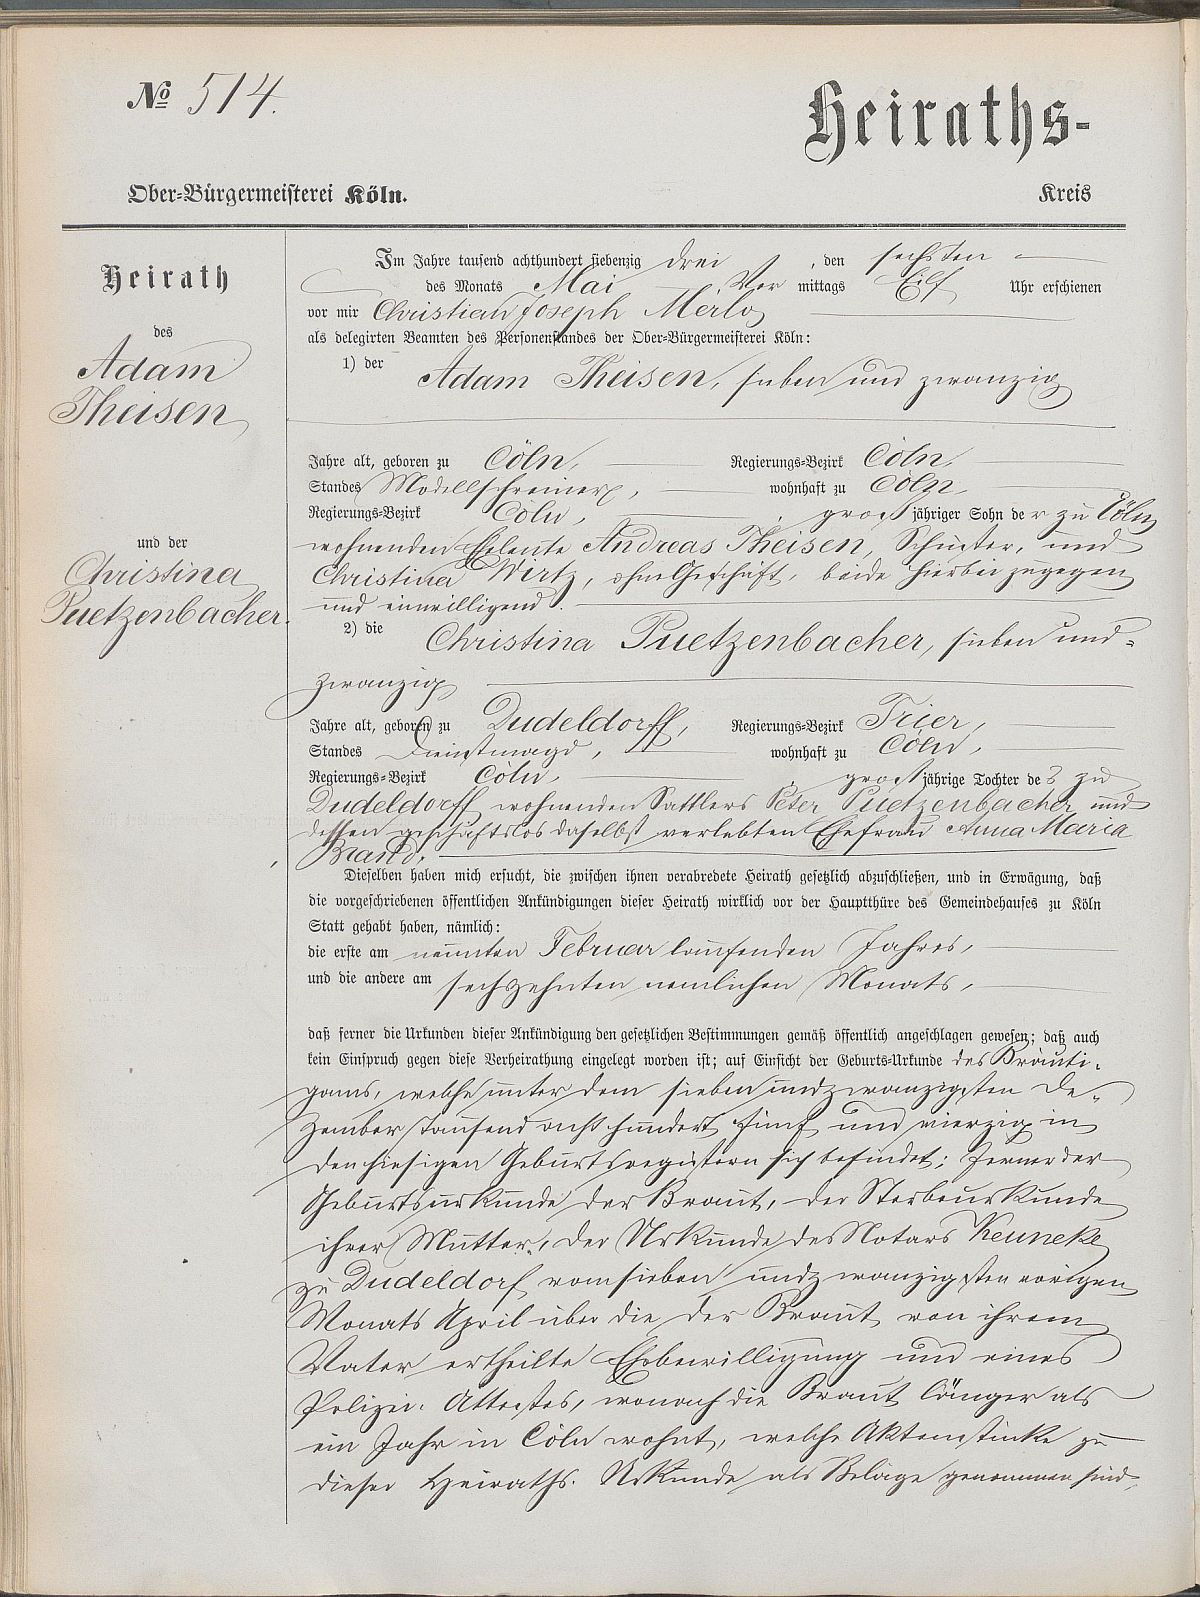 No 514.
Heiraths-
Ober-Bürgermeisterei Köln.
Kreis
Heirath
des
Adam
Theisen
und der
Christina
Puetzenbacher.
Im Jahre tausend achthundert siebenzig drei, den sechsten
des Monats Mai Vor mittags Eilf Uhr erschienen
vor mir Christian Joseph Merlo
als delegirten Beamten des Personenstandes der Ober-Bürgermeisterei Köln:
1) der Adam Theisen, sieben und zwanzig
Jahre alt, geboren zu Cöln, Regierungs-Bezirk Cöln,
Standes Modellschreiner, wohnhaft zu Cöln,
Regierungs-Bezirk Cöln, groß jähriger Sohn der zu Cöln
wohnenden Eheleute Andreas Theisen, Schuster, und
Christina Wertz, ohne Geschäft, beide hierbei zugegen
und einwilligend.
2) die Christina Puetzenbacher, sieben und-
zwanzig
Jahre alt, geboren zu Dudeldorff, Regierungs-Bezirk Trier,
Standes Dienstmagd, wohnhaft zu Cöln,
Regierungs-Bezirk Cöln, groß jährige Tochter des zu
Dudeldorff wohnenden Sattlers Peter Puetzenbacher und
dessen geschäftslos daselbst verlebten Ehefrau Anna Maria
Brand.
Dieselben haben mich ersucht, die zwischen ihnen verabredete Heirath gesetzlich abzuschließen, und in Erwägung, daß
die vorgeschriebenen öffentlichen Ankündigungen dieser Heirath wirklich vor der Hauptthüre des Gemeindehauses zu Köln
Statt gehabt haben, nämlich:
die erste am neunten Februar laufenden Jahres,
und die andere am sechszehnten nemlichen Monats,
daß ferner die Urkunden dieser Ankündigung den gesetzlichen Bestimmungen gemäß öffentlich angeschlagen gewesen; daß auch
kein Einspruch gegen diese Verheirathung eingelegt worden ist; auf Einsicht der Geburts-Urkunde des Bräuti-
gams, welche unter dem sieben und zwanzigsten De-
zember tausend acht hundert fünf und vierzig in
den hiesigen Geburtsregistern sich befindet; ferner der
Geburtsurkunde der Braut, der Sterbeurkunde
ihrer Mutter, der Urkunde des Notars Keuneke
zu Dudeldorf vom sieben und zwanzigsten vorigen
Monats April über die der Braut von ihrem
Vater ertheilte Ehebewilligung und eines
Polizei-Attestes, wonach die Braut länger als
ein Jahr in Cöln wohnt, welche Aktenstücke zu
dieser Heiraths-Urkunde als Beläge genommen sind,